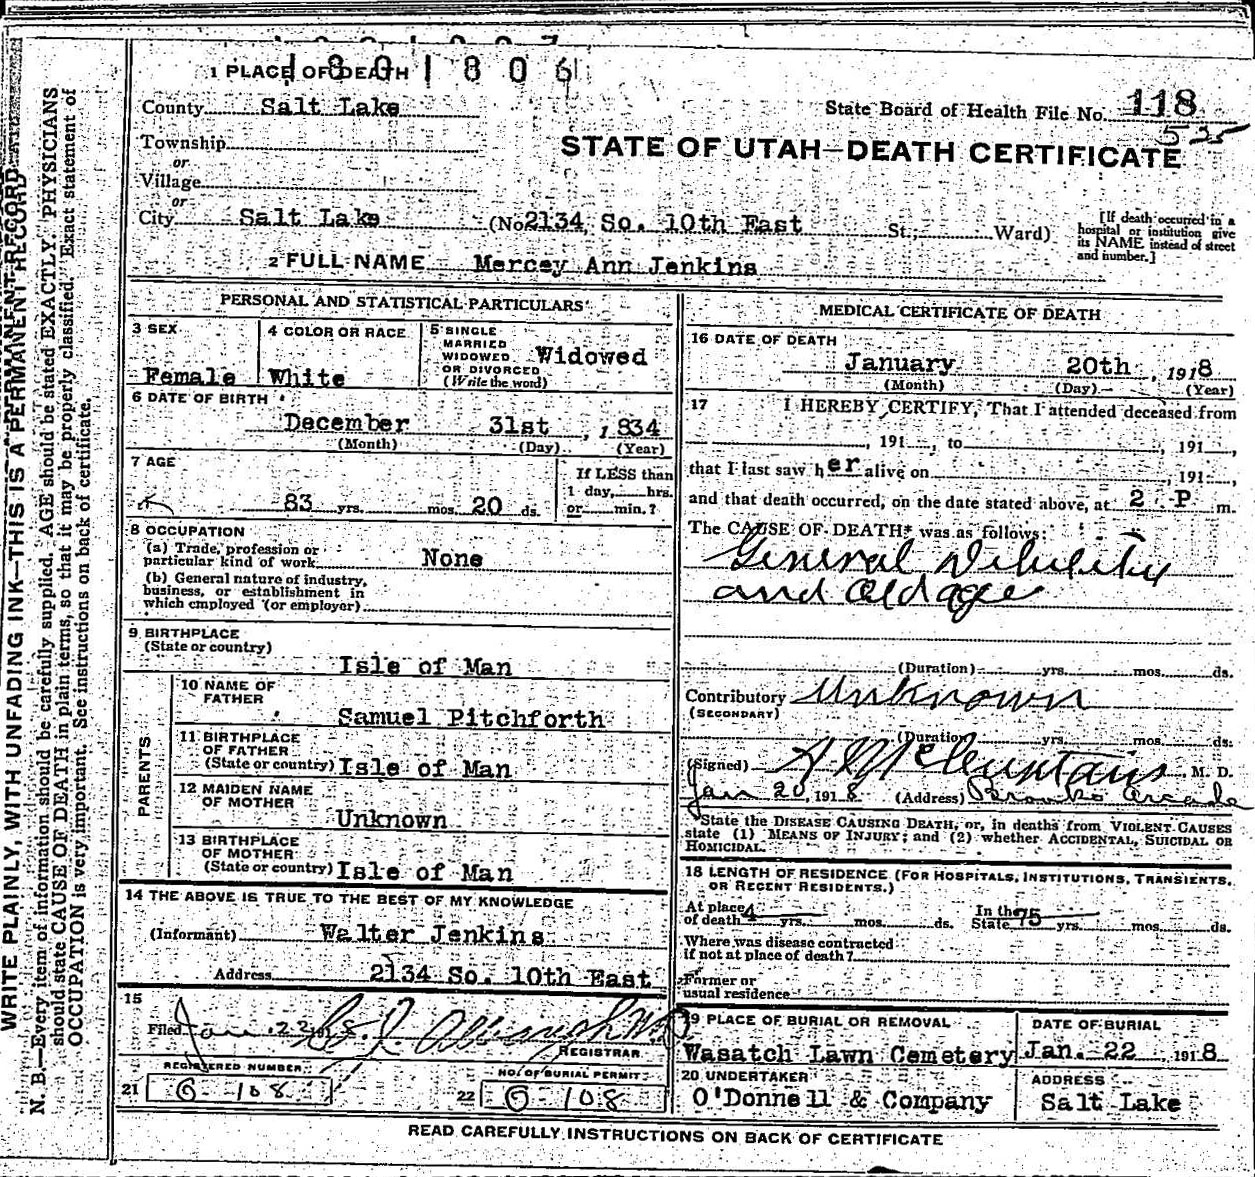 1801806
1 PLACE OF DEATH
County Salt Lake
State Board of Health File No. 118
535
Township
or
Village
or
City Salt Lake (No 2134 So. 10th East St.; Ward)
STATE OF UTAH—DEATH CERTIFICATE
[If death occurred in a
hospital or institution give
its NAME instead of street
and number.]
2 FULL NAME Mercey Ann Jenkins
PERSONAL AND STATISTICAL PARTICULARS
3 SEX
Female
4 COLOR OR RACE
White
5 SINGLE
MARRIED
WIDOWED
OR DIVORCED
(Write the word)
Widowed
6 DATE OF BIRTH
December 31st, 1834
(Month) (Day) (Year)
7 AGE
83 yrs. mos. 20 ds.
If LESS than
1 day, hrs.
or min.?
8 OCCUPATION
(a) Trade, profession or
particular kind of work None
(b) General nature of industry,
business, or establishment in
which employed (or employer)
9 BIRTHPLACE
(State or country)
Isle of Man
PARENTS
10 NAME OF
FATHER
Samuel Pitchforth
11 BIRTHPLACE
OF FATHER
(State or country) Isle of Man
12 MAIDEN NAME
OF MOTHER
Unknown
13 BIRTHPLACE
OF MOTHER
(State or country) Isle of Man
14 THE ABOVE IS TRUE TO THE BEST OF MY KNOWLEDGE
(Informant) Walter Jenkins
Address 2134 So. 10th East
15
Filed Jan. 22 1918
REGISTRAR
REGISTERED NUMBER
21 G 108
NO. OF BURIAL PERMIT
22 G 108
MEDICAL CERTIFICATE OF DEATH
16 DATE OF DEATH
January 20th, 1918
(Month) (Day) (Year)
17 I HEREBY CERTIFY, That I attended deceased from
, 191 , to , 191 ,
that I last saw her alive on , 191 ,
and that death occurred, on the date stated above, at 2 P m.
The CAUSE OF DEATH* was as follows:
General Debility
and Old age
(Duration) yrs. mos. ds.
Contributory Unknown
(SECONDARY)
(Duration) yrs. mos. ds.
(Signed) M. D.
Jan 20, 1918 (Address) Brooks Arcade
*State the DISEASE CAUSING DEATH, or, in deaths from VIOLENT CAUSES
state (1) MEANS OF INJURY; and (2) whether ACCIDENTAL, SUICIDAL OR
HOMICIDAL.
18 LENGTH OF RESIDENCE (FOR HOSPITALS, INSTITUTIONS, TRANSIENTS,
OR RECENT RESIDENTS.)
At place
of death 4 yrs. mos. ds. In the
State 75 yrs. mos. ds.
Where was disease contracted
if not at place of death?
Former or
usual residence
19 PLACE OF BURIAL OR REMOVAL
Wasatch Lawn Cemetery
DATE OF BURIAL
Jan. 22, 1918
20 UNDERTAKER
O'Donnell & Company
ADDRESS
Salt Lake
READ CAREFULLY INSTRUCTIONS ON BACK OF CERTIFICATE
WRITE PLAINLY, WITH UNFADING INK—THIS IS A PERMANENT RECORD
N. B.—Every item of information should be carefully supplied. AGE should be stated EXACTLY. PHYSICIANS
should state CAUSE OF DEATH in plain terms, so that it may be properly classified. Exact statement of
OCCUPATION is very important. See instructions on back of certificate.